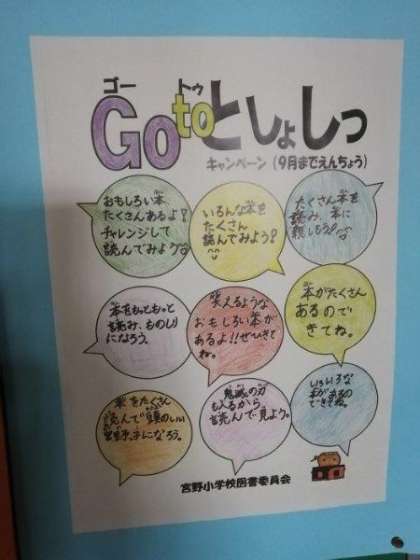 ゴー トゥ
Go to としょしつ
キャンペーン（9月までえんちょう）
おもしろい本、
たくさんあるよ！
チャレンジして
読んでみよう
いろんな本を
たくさん
読んでみよう！
たくさん本を
読み、本に
親しもう！
本をもっともっと
読み、ものしり
になろう。
笑えるような
おもしろい本が
あるよ!!ぜひきて
ね。
本がたくさん
あるので
きてね。
本をたくさん
読んで頭のいい
宮野っ子になろう。
鬼滅の刃
も入るから
読んで見よう。
いろいろな
本があるの
できてね。
宮野小学校図書委員会